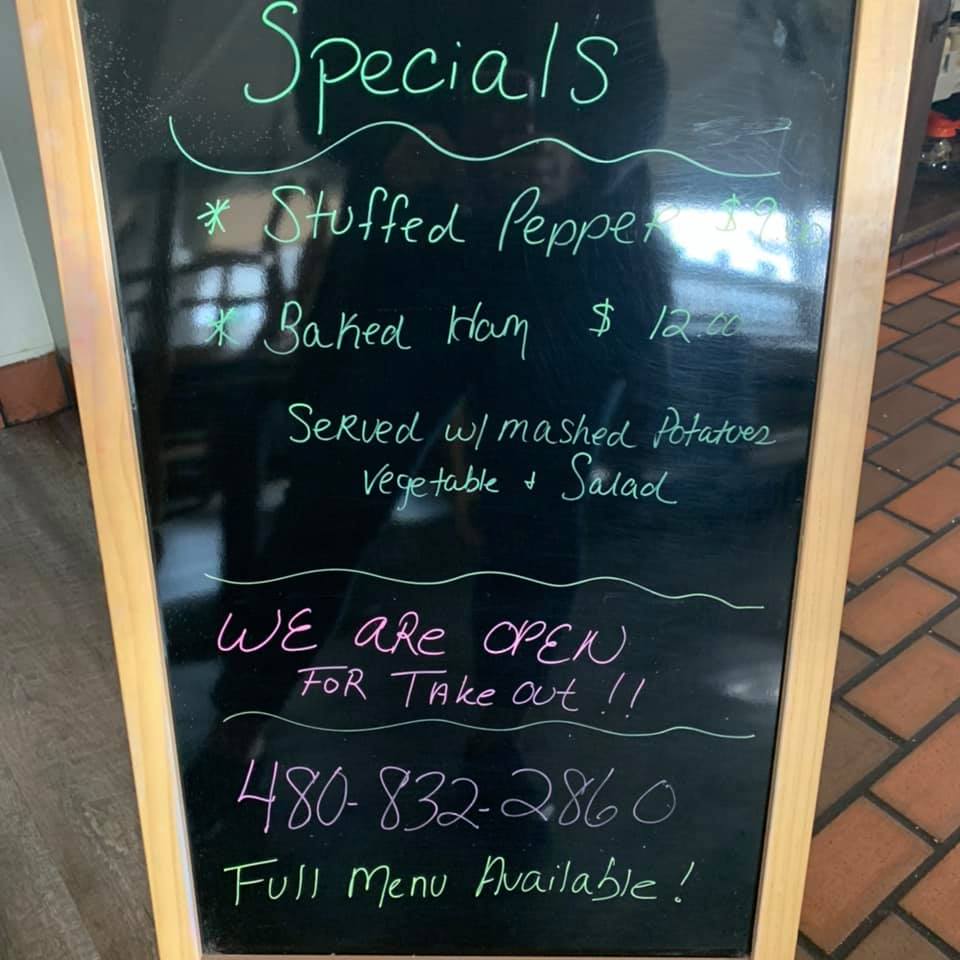 Specials
* Stuffed Pepper $9
* Baked Ham $ 12.00
Served w/ mashed Potatoes
Vegetable & Salad
WE ARE OPEN
FOR TAKE OUT !!
480-832-2860
Full Menu Available!